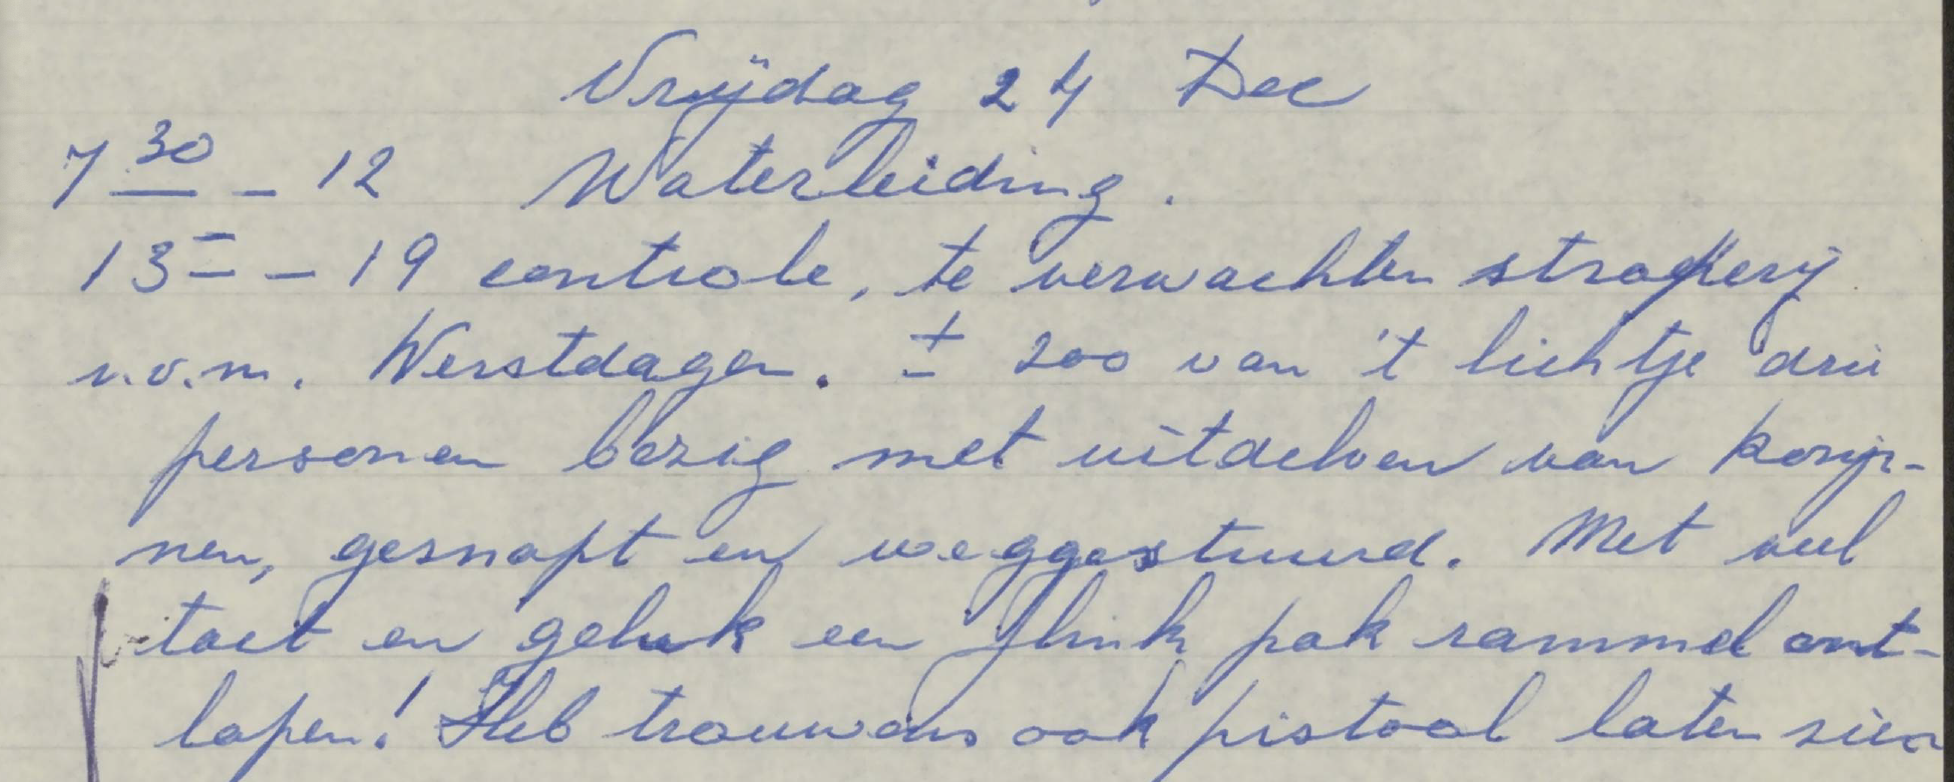 Vrijdag 24 Dec
7 30 - 12 Waterleiding.
13 = - 19 controle, te verwachten stroperij
i.v.m. Kerstdagen. ± 200 van 't lichtje drie
personen bezig met uitdelven van konij-
nen, gesnapt en weggestuurd. Met veel
tact en geluk een flink pak rammel ont-
lopen! Heb trouwens ook pistool laten zien